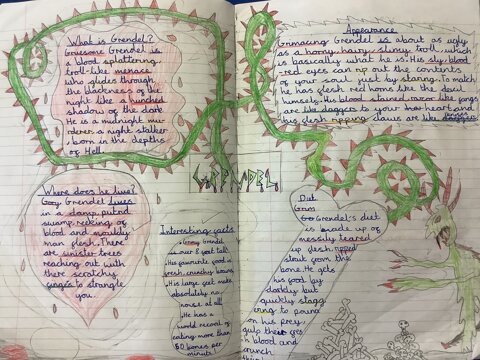 What is Grendel?
Gruesome Grendel is
a blood splattering,
troll-like menace
who glides through
the blackness of the
night like a hunched
shadow of the dark
He is a midnight mur
derer a night stalker
, born in the depths
of Hell
Appearance
Grimacing Grendel is about as ugly
as a horny, hairy, slimy troll, which
is basically what he is. His sly, blood
-red eyes can rip out the contents
of your soul just by staring. To match
he has flesh red horns like the devil
himself. His blood stained, razor like fangs
are like daggers to your heart and
his flesh ripping claws are like
GRENDEL
Where does he live?
Grendel lives
in a damp, putrid
swamp, reeking of
blood and mouldy
man flesh. There
are sinister trees
reaching out with
there scratchy
to strangle
you.
Interesting facts
Grendel
is over 8 feet tall!
His favourite food is
fresh, crunchy bones
His large feet make
absolutely no
noise at all!
He has a
world record of
eating more than
50 bones per
minute!
Diet
Grim
Grendel's diet
is made up of
messily teared
flesh, ripped
straight from the
bone. He gets
his food by
darkly but
quickly
ing to pound
on his prey,
gulp there
in blood and
crunch